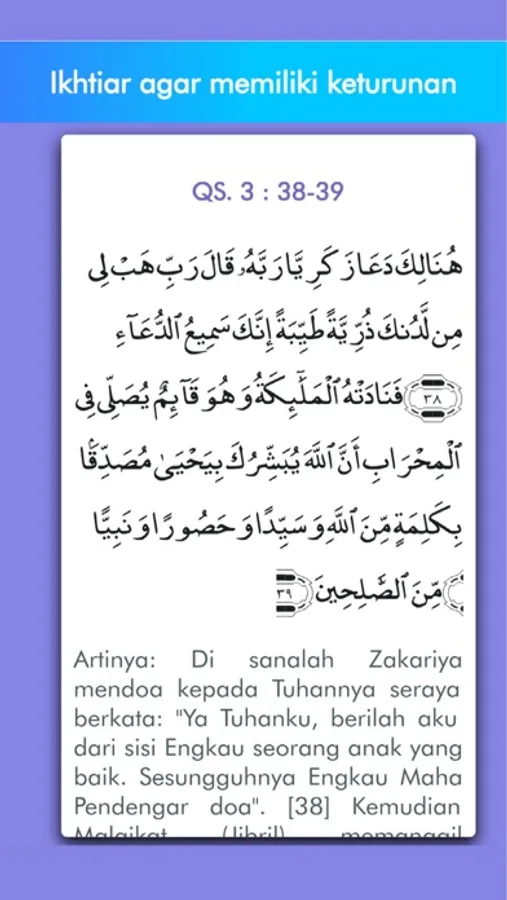 Ikhtiar agar memiliki keturunan
QS. 3 : 38-39
هُنَالِكَ دَعَا زَكَرِيَّا رَبَّهُۥ قَالَ رَبِّ هَبْ لِي
مِن لَّدُنكَ ذُرِّيَّةً طَيِّبَةً إِنَّكَ سَمِيعُ ٱلدُّعَآءِ
٣٨ فَنَادَتْهُ ٱلْمَلَٰٓئِكَةُ وَهُوَ قَآئِمٌ يُصَلِّي فِي
ٱلْمِحْرَابِ أَنَّ ٱللَّهَ يُبَشِّرُكَ بِيَحْيَىٰ مُصَدِّقًۢا
بِكَلِمَةٍ مِّنَ ٱللَّهِ وَسَيِّدًا وَحَصُورًا وَنَبِيًّا
مِّنَ ٱلصَّٰلِحِينَ ٣٩
Artinya: Di sanalah Zakariya
mendoa kepada Tuhannya seraya
berkata: "Ya Tuhanku, berilah aku
dari sisi Engkau seorang anak yang
baik. Sesungguhnya Engkau Maha
Pendengar doa". [38] Kemudian
Malaikat (Jibril) memanggil